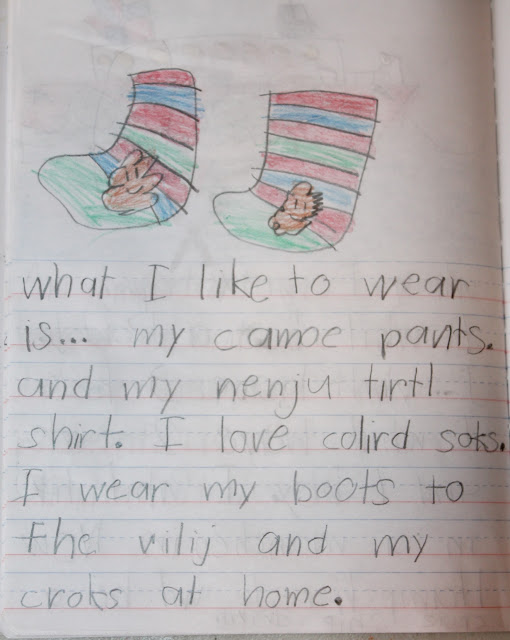 what I like to wear
is... my camoe pants.
and my nenju tirtl
shirt. I love colird soks.
I wear my boots to
the vilij and my
croks at home.